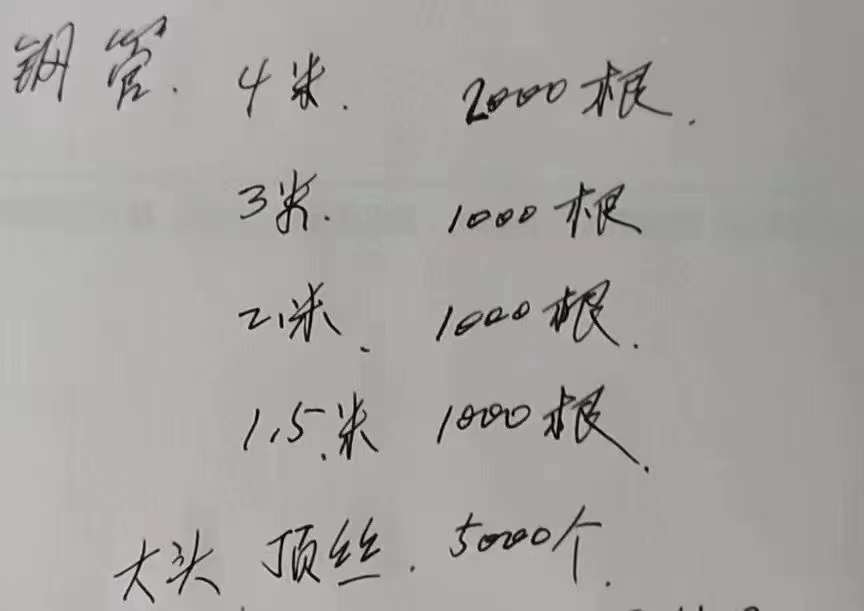 钢管. 4米. 2000根.
3米. 1000根
2米. 1000根.
1.5米 1000根.
大头 顶丝. 5000个.